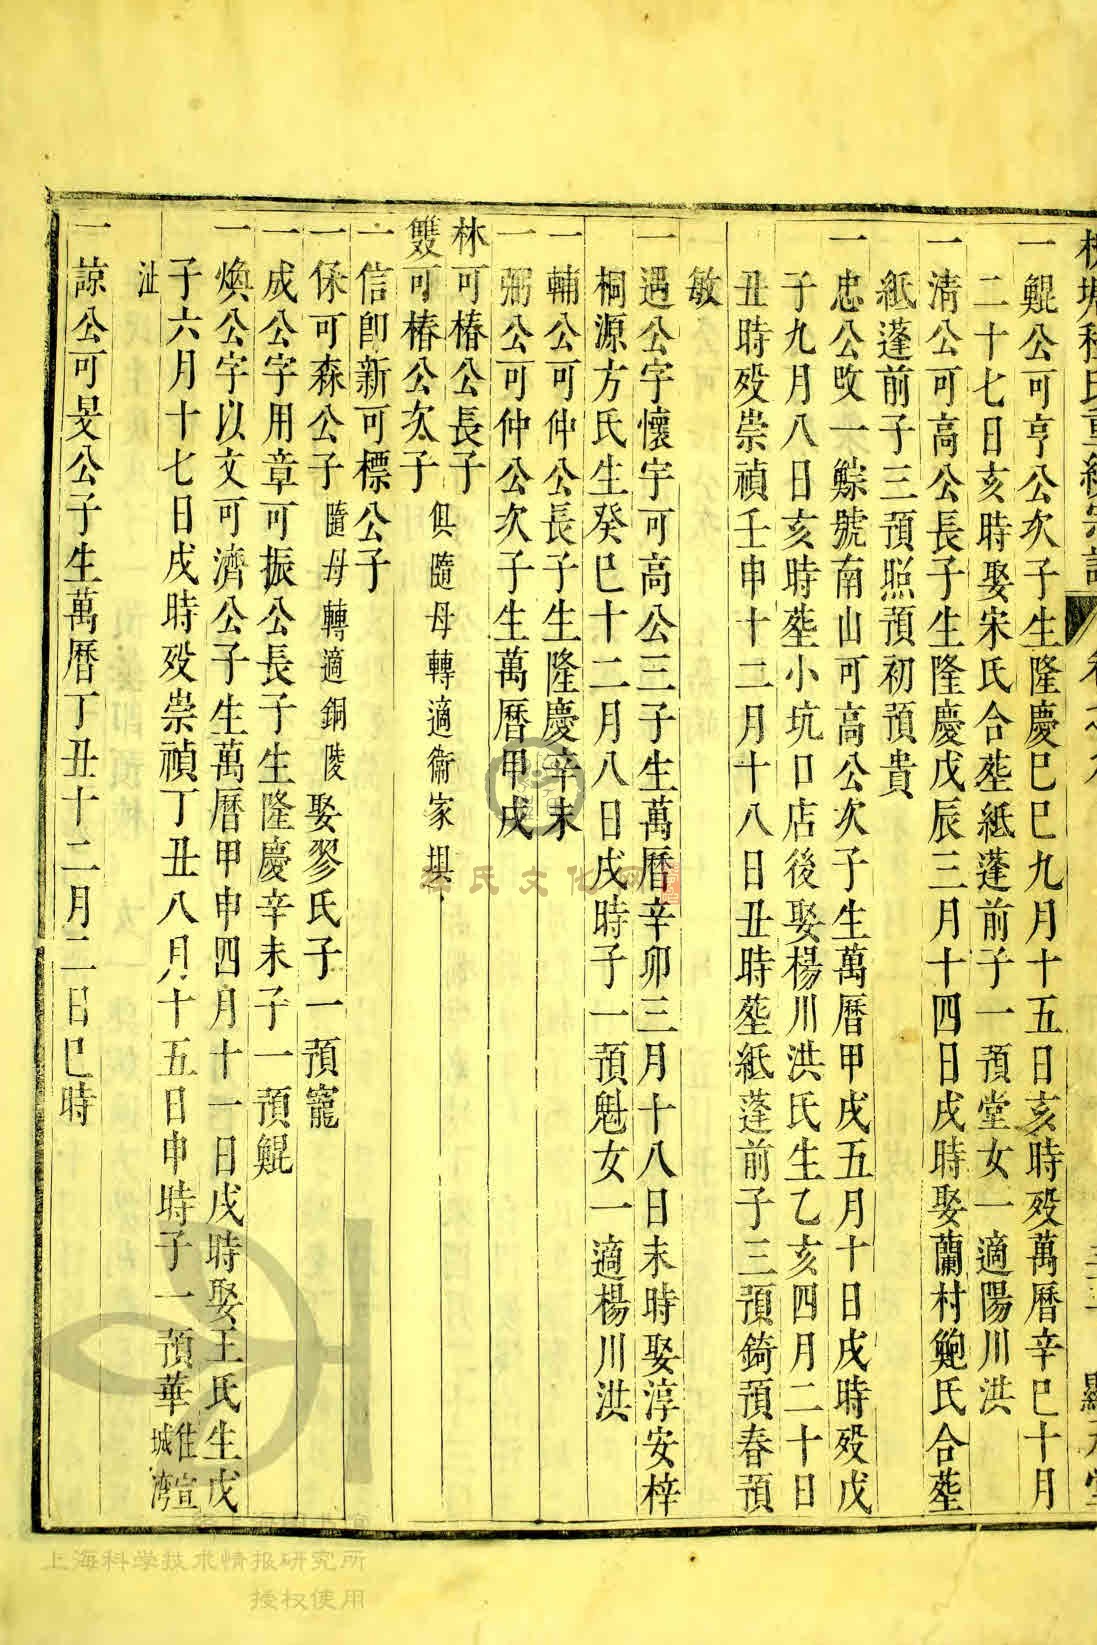 程氏重續宗譜
一鯤公可亨公次子生隆慶己巳九月十五日亥時歿萬曆辛巳十月
二十七日亥時娶宋氏合塟紙蓬前子一預堂女一適陽川洪
一清公可高公長子生隆慶戊辰三月十四日戌時娶蘭村鮑氏合塟
紙蓬前子三預照預初預貴
一忠公改一鯮號南山可高公次子生萬曆甲戌五月十日戌時歿戊
子九月八日亥時塟小坑口店後娶楊川洪氏生乙亥四月二十日
丑時歿崇禎壬申十二月十八日丑時塟紙蓬前子三預錡預春預
敏
一遇公字懷宇可高公三子生萬曆辛卯三月十八日未時娶淳安梓
桐源方氏生癸巳十二月八日戌時子一預魁女一適楊川洪
一輔公可仲公長子生隆慶辛未
一弼公可仲公次子生萬曆甲戌
林可椿公長子
雙可椿公次子 俱隨母轉適衞家垻
一信卽新可標公子
一保可森公子隨母轉適銅陵娶翏氏子一預寵
一成公字用章可振公長子生隆慶辛未子一預鯤
一煥公字以文可濟公子生萬曆甲申四月十一日戌時娶王氏生戊
子六月十七日戌時歿崇禎丁丑八月十五日申時子一預華住宣城湾
沚
一諒公可旻公子生萬曆丁丑十二月二日巳時
上海科学技术情报研究所
授权使用